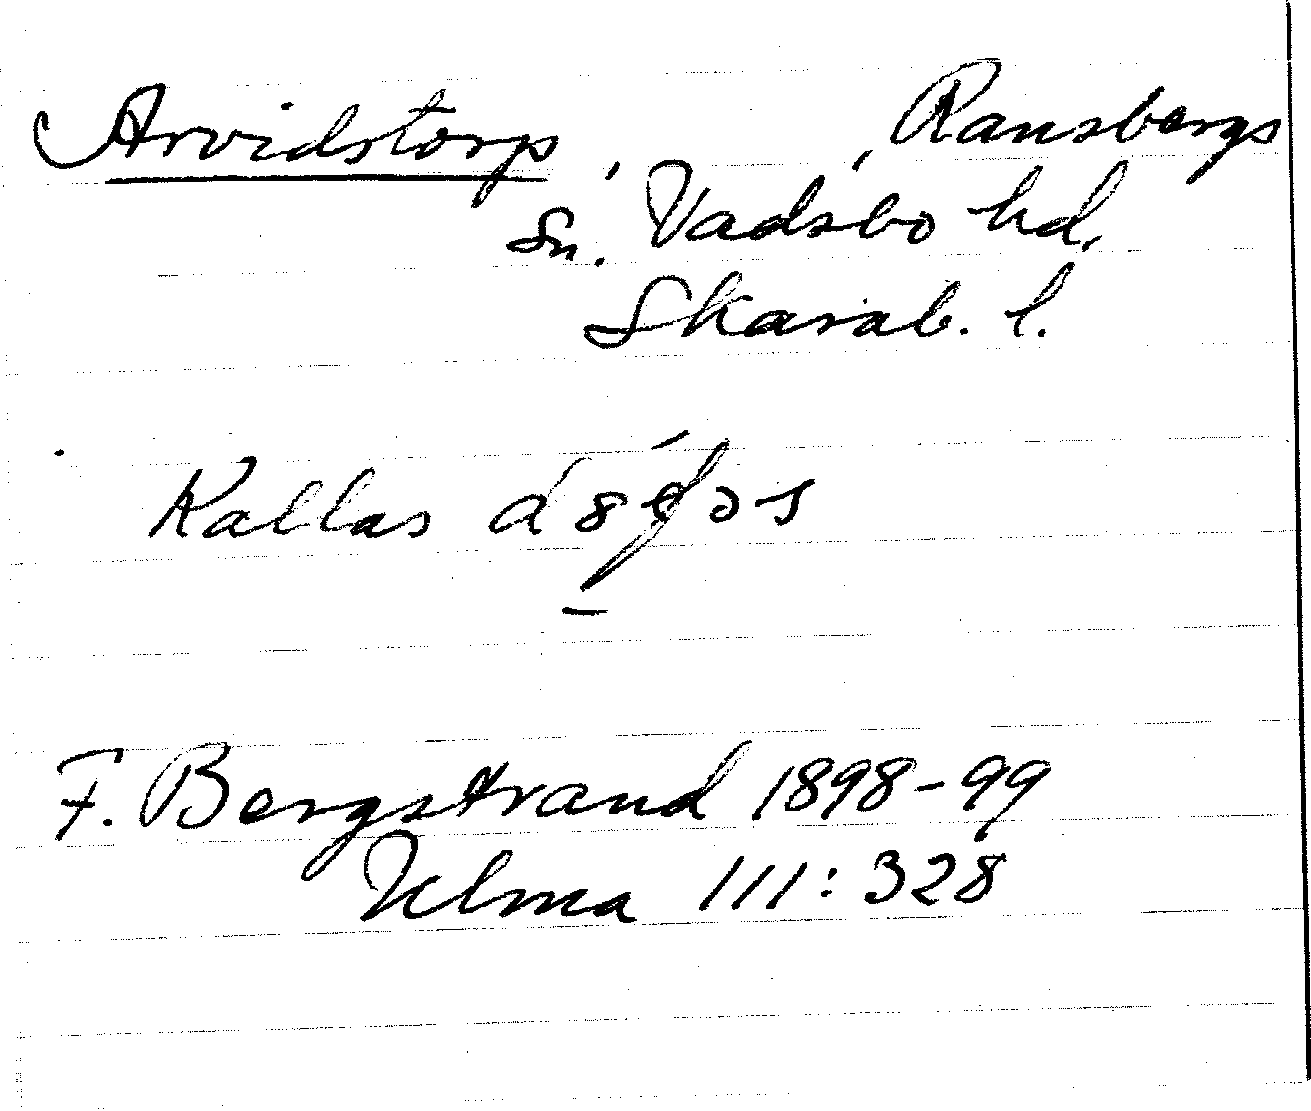 Arvidstorp, , Ransbergs
sn. Vadsbo hd,
Skarab. l.
Kallas
F. Bergstrand 1898-99
Ulma 111:328